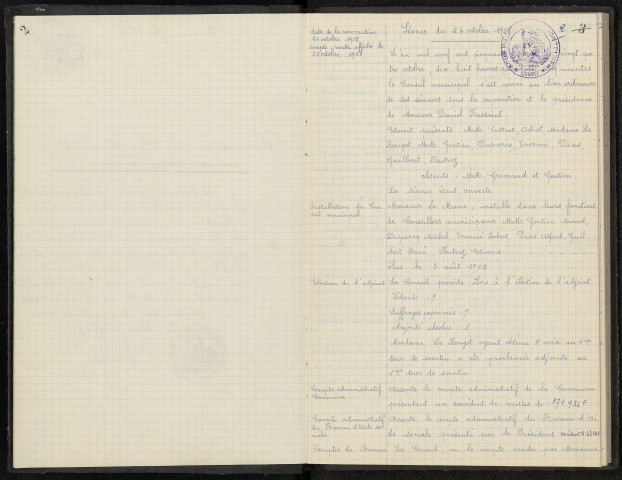 2
3
date de la convocation
20 octobre 1958
compte rendu affiché le
28 octobre 1958
Séance du 24 octobre
L'an mil neuf cent cinquante
octobre, dix huit heures minutes
le Conseil municipal s'est réuni au lieu ordinaire
de ses séances sous la convocation et la présidence
de Monsieur Daniel Toussaint
Etaient présents Madame Le
Rouzot, MM. Gentien, Duparcq, Dias
Guilbert,
absents : MM. Grimaud et Gentien
La séance étant ouverte
Installation du Con
seil municipal
Monsieur le Maire, installe dans leurs fonctions
de Conseillers municipaux MM. Gentien Marcel,
Duparcq Michel, Robert, Dias Alfred, Guil
bert René,
élus le 3 août 1958
Election de l'adjoint
Le Conseil procède alors à l'élection de l'adjoint
Votants : 9
Suffrages exprimés : 9
Majorité absolue : 5
Madame Le Rouzot ayant obtenu 8 voix au 1er
tour de scrutin a été proclamée adjointe au
1er tour de scrutin
Compte administratif
Commune
Accepte le compte administratif de la Commune
présentant un excédent de recettes de : 871.936 F
Compte administratif
du Bureau d'aide so
ciale
Accepte le compte administratif du Bureau d'ai
de sociale présenté par le Président
Comptes du Receveur
Le Conseil, vu le compte rendu par Monsieur